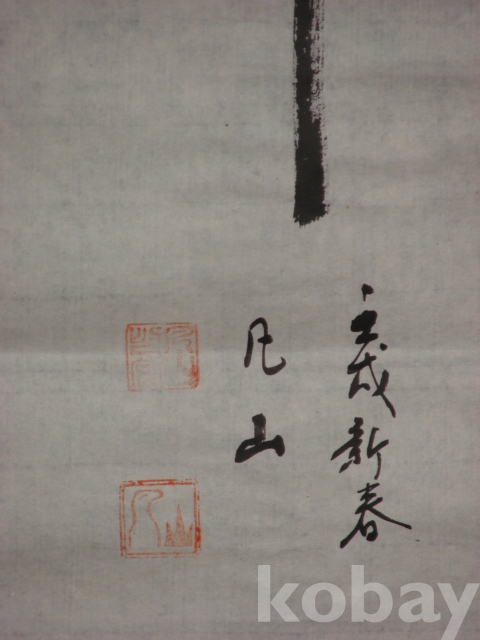 壬戌新春
凡山
kobay